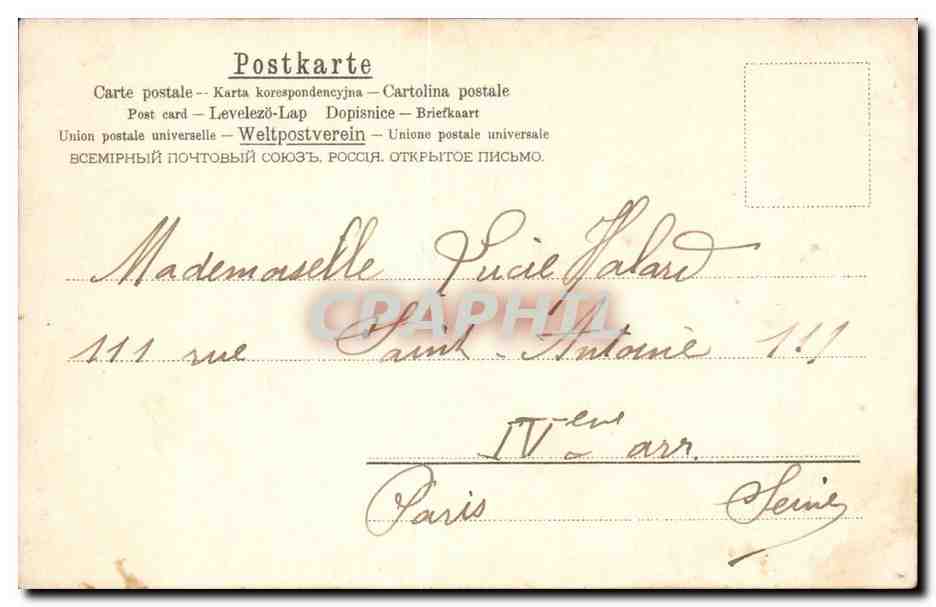 Postkarte
Carte postale -- Karta korespondencyjna — Cartolina postale
Post card — Levelező-Lap Dopisnice — Briefkaart
Union postale universelle — Weltpostverein — Unione postale universale
ВСЕМІРНЫЙ ПОЧТОВЫЙ СОЮЗЪ. РОССІЯ. ОТКРЫТОЕ ПИСЬМО.
Mademoiselle Lucie Halard
CPAPHIL
111 rue Saint-Antoine 111
IVème arr.
Paris Seine